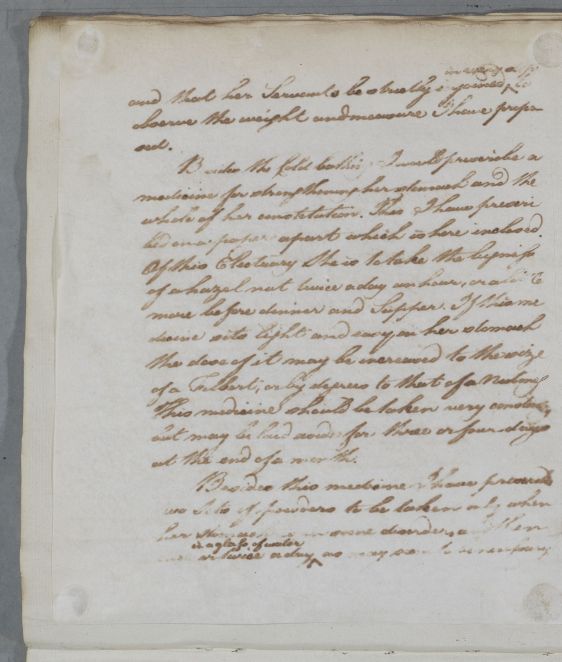 and that her Servants be strictly enjoined to
observe the weight and measure I have propo
sed.
Besides the Cold bathing, I would prescribe a
medicine for strengthening her stomach and the
whole of her constitution. This I have prescri
bed on a paper apart which is here inclosed.
Of this Electuary She is to take the bigness
of a hazel nut twice a day an hour, or a little
more before dinner and Supper. If this me
decine sits light and easy on her stomach
the dose of it may be increased to the size
of a Filbert, or by degrees to that of a Nutmeg
This medicine should be taken very constantly,
but may be laid aside for three or four days
at the end of a month.
Besides this medicine I have prescribed
two Sets of powders to be taken only when
her stomach is in some disorder, and then
in a glass of water
once or twice a day, as may seem to be necessary